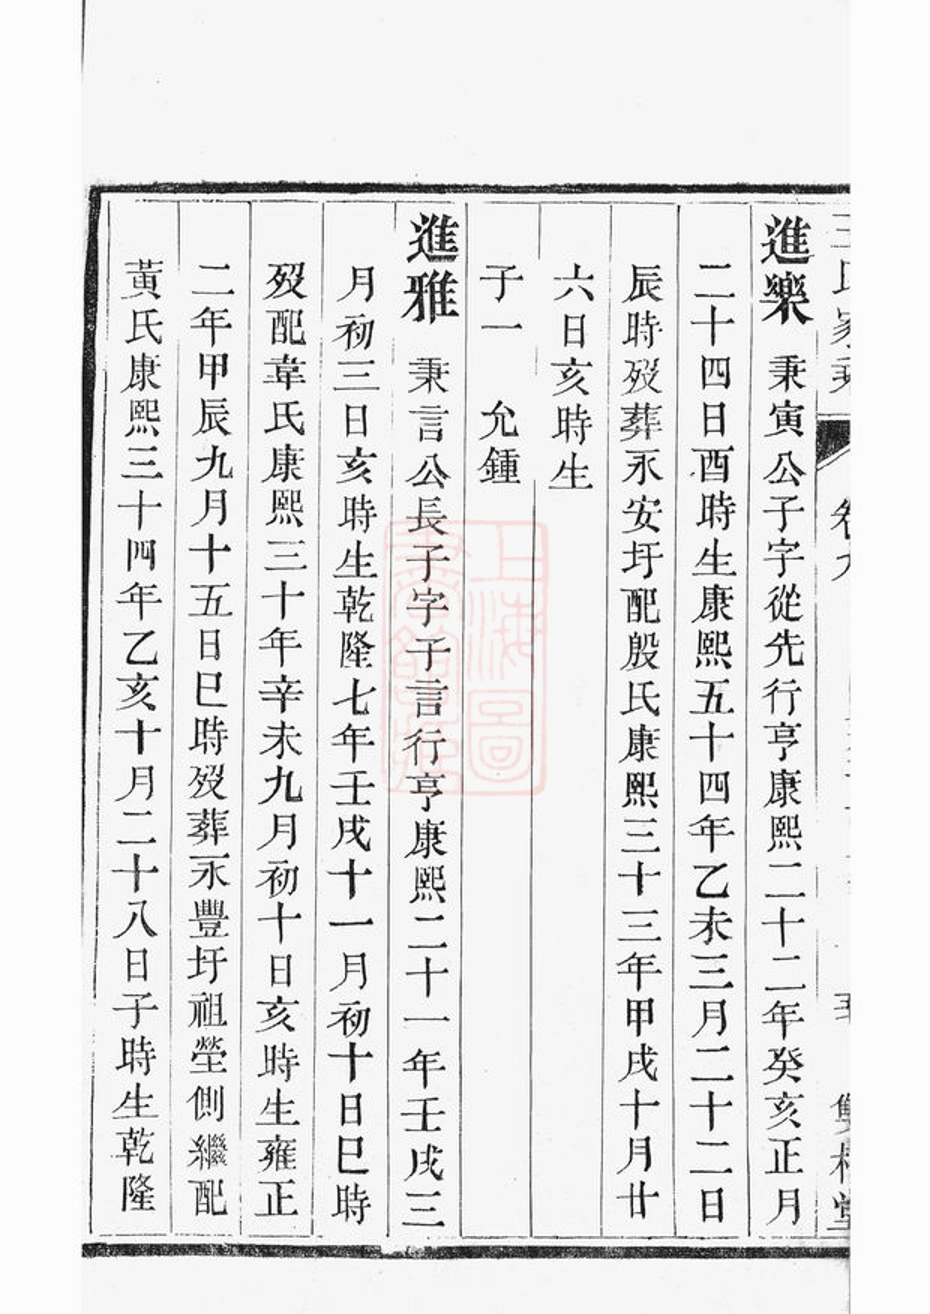 進樂 秉寅公子字從先行亨康熙二十二年癸亥正月
二十四日酉時生康熙五十四年乙未三月二十二日
辰時歿葬永安圩配殷氏康熙三十三年甲戌十月廿
六日亥時生
子一 允鍾
進雅 秉言公長子字子言行亨康熙二十一年壬戌三
月初三日亥時生乾隆七年壬戌十一月初十日巳時
歿配韋氏康熙三十年辛未九月初十日亥時生雍正
二年甲辰九月十五日巳時歿葬永豐圩祖塋側繼配
黃氏康熙三十四年乙亥十月二十八日子時生乾隆
上海圖
書館藏